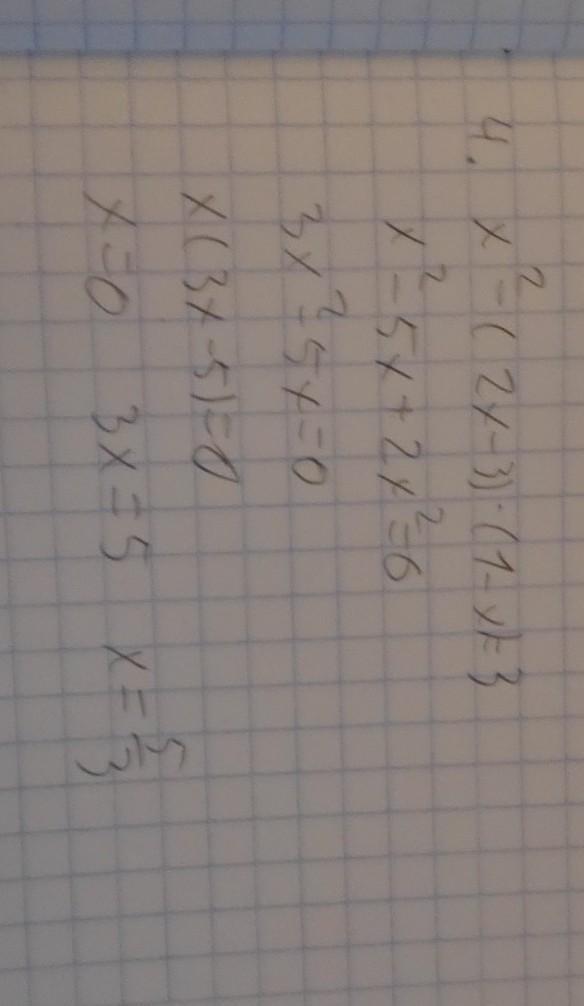 4. x² - (2x-3)·(1-x)=3
x²-5x+2x²=6
3x²-5x=0
x(3x-5)=0
x=0 3x=5 x=5/3